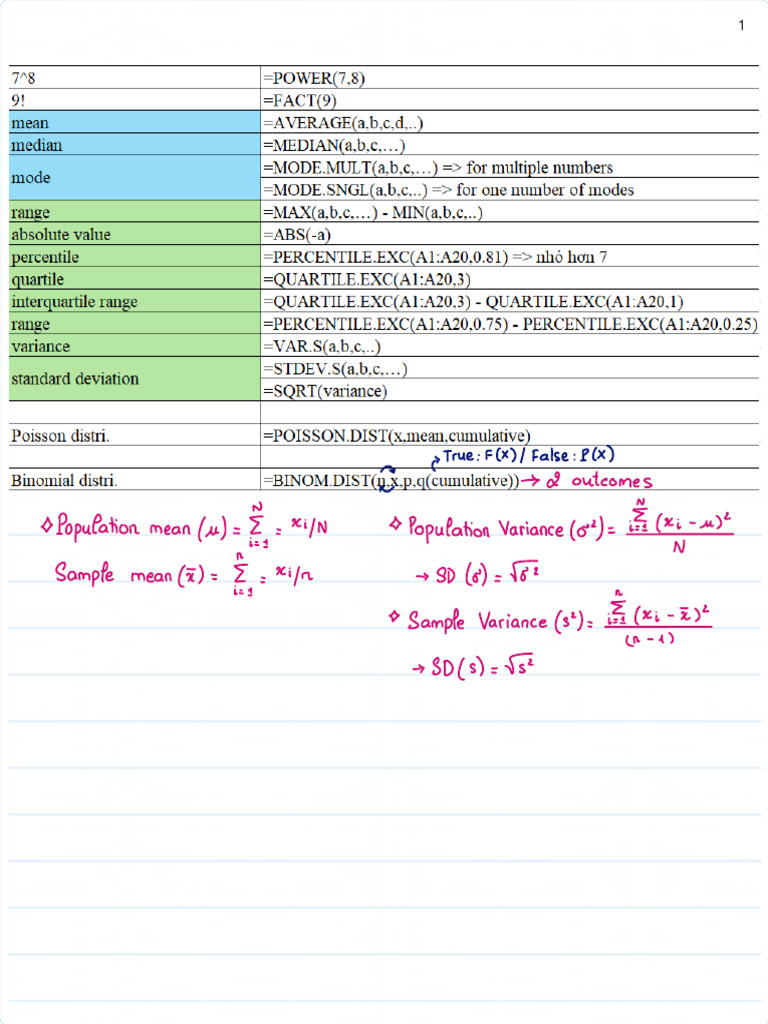 1
7^8 =POWER(7,8)
9! =FACT(9)
mean =AVERAGE(a,b,c,d,..)
median =MEDIAN(a,b,c,…)
mode =MODE.MULT(a,b,c,…) => for multiple numbers
=MODE.SNGL(a,b,c,..) => for one number of modes
range =MAX(a,b,c,…) - MIN(a,b,c,..)
absolute value =ABS(-a)
percentile =PERCENTILE.EXC(A1:A20,0.81) => nhỏ hơn 7
quartile =QUARTILE.EXC(A1:A20,3)
interquartile range =QUARTILE.EXC(A1:A20,3) - QUARTILE.EXC(A1:A20,1)
range =PERCENTILE.EXC(A1:A20,0.75) - PERCENTILE.EXC(A1:A20,0.25)
variance =VAR.S(a,b,c,..)
standard deviation =STDEV.S(a,b,c,…)
=SQRT(variance)
Poisson distri. =POISSON.DIST(x,mean,cumulative)
True: F(x) / False: P(x)
Binomial distri. =BINOM.DIST(n,x,p,q(cumulative)) → 2 outcomes
◊ Population mean (μ) = ∑_{i=1}^{N} = xi/N
Sample mean (x̄) = ∑_{i=1}^{n} = xi/n
◊ Population Variance (σ²) = ∑_{i=1}^{N} (xi - μ)² / N
→ SD (σ) = √σ²
◊ Sample Variance (s²) = ∑_{i=1}^{n} (xi - x̄)² / (n - 1)
→ SD (s) = √s²